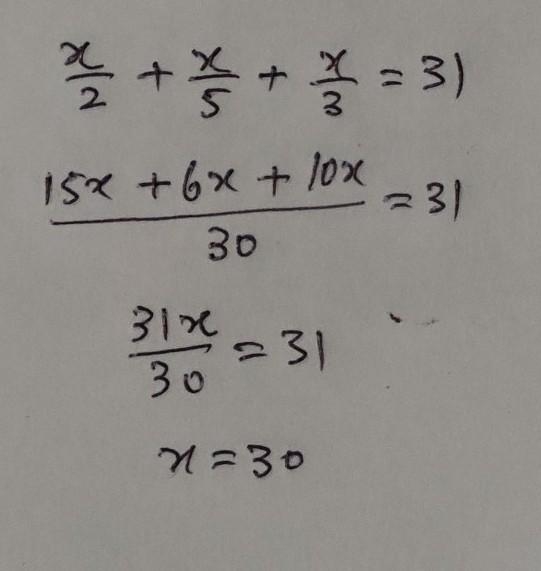 x/2 + x/5 + x/3 = 31
(15x + 6x + 10x)/30 = 31
31x/30 = 31
x = 30